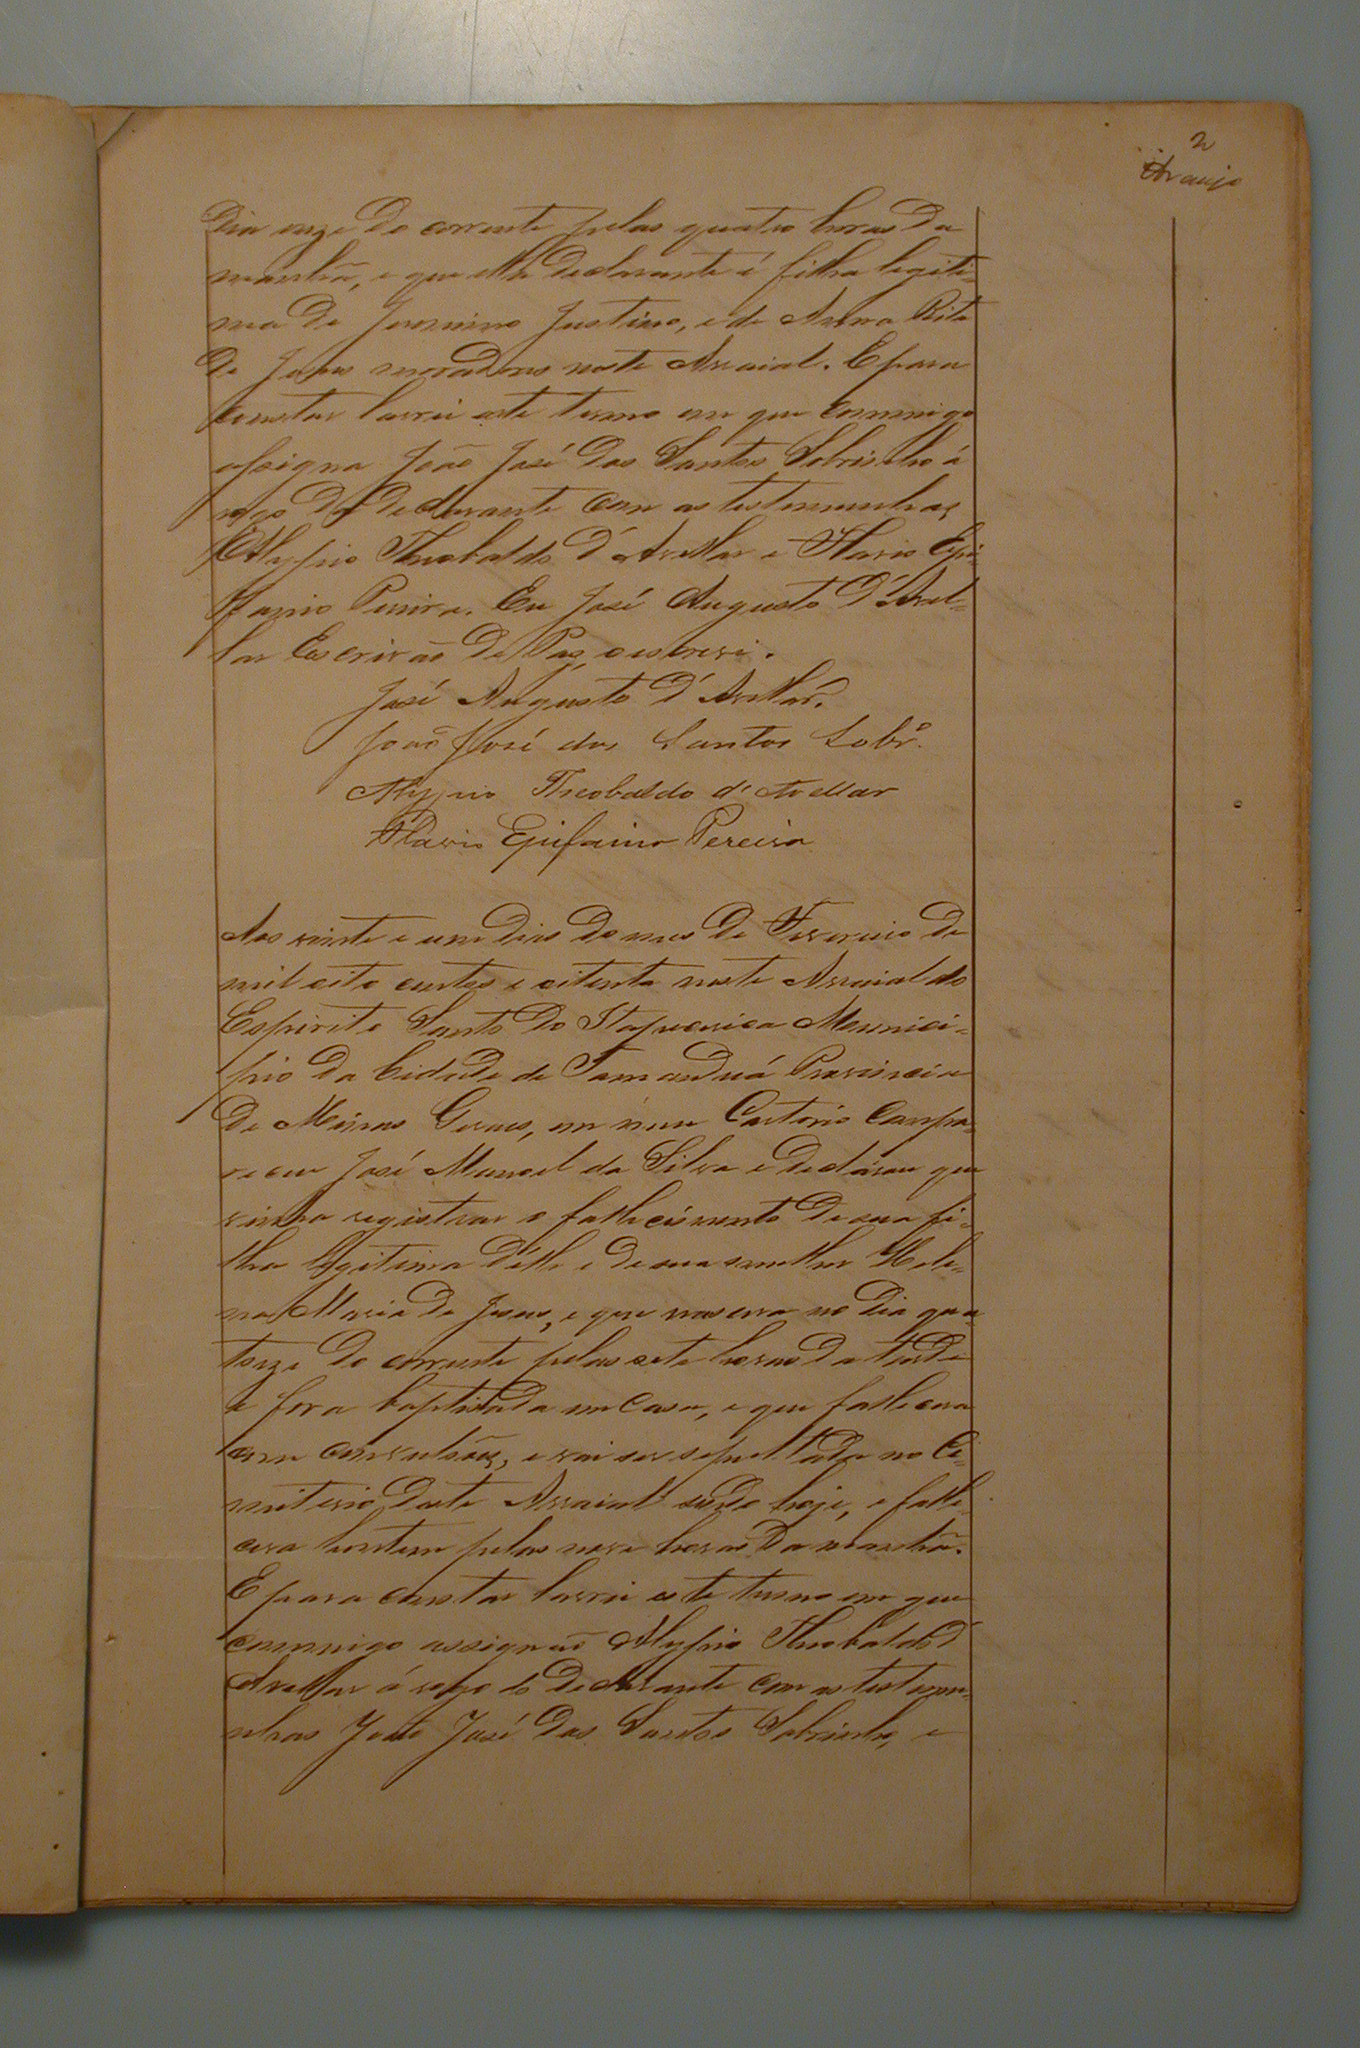 2
Araujo
Dia onze do corrente pelas quatro horas da
manhã, e que ella declarante é filha legiti-
ma de Jeronimo Justino, e de Anna Rita
de Jesus moradores neste Arraial. E para
constar lavrei este termo em que commigo
assigna João José dos Santos Sobrinho á
rogo da declarante com as testemunhas
Alypio Theobaldo d'Avellar e Flavio Epi-
fanio Pereira. Eu José Augusto d'Avel-
lar Escrivão de Paz, o escrevi.
José Augusto d'Avellar.
João José dos Santos Sobrº.
Alypio Theobaldo d'Avellar
Flavio Epifanio Pereira
Aos vinte e um dias do mes de Fevereiro de
mil oito centos e oitenta neste Arraial do
Espirito Santo do Itapecerica Munici-
pio da Cidade de Tamanduá Provincia
de Minas Geraes, em meu Cartorio compa-
receu José Manoel da Silva e declarou que
vinha registrar o fallecimento de sua fi-
lha legitima d'elle e de sua mulher Hele-
na Maria de Jesus, e que nascera no dia qua
torze do corrente pelas sete horas da tarde
e fora baptisada em casa, e que fallecera
em convulsões, e vai ser sepultada no Ce-
miterio deste Arraial sendo hoje, e falle-
cera hontem pelas nove horas da manhã.
E para constar lavrei este termo em que
commigo assignão Alypio Theobaldo d'
Avellar á rogo do declarante com as testemu-
nhas João José dos Santos Sobrinho, e